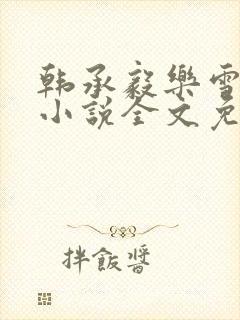 韩承毅樂雪
小說全文免
拌飯醬